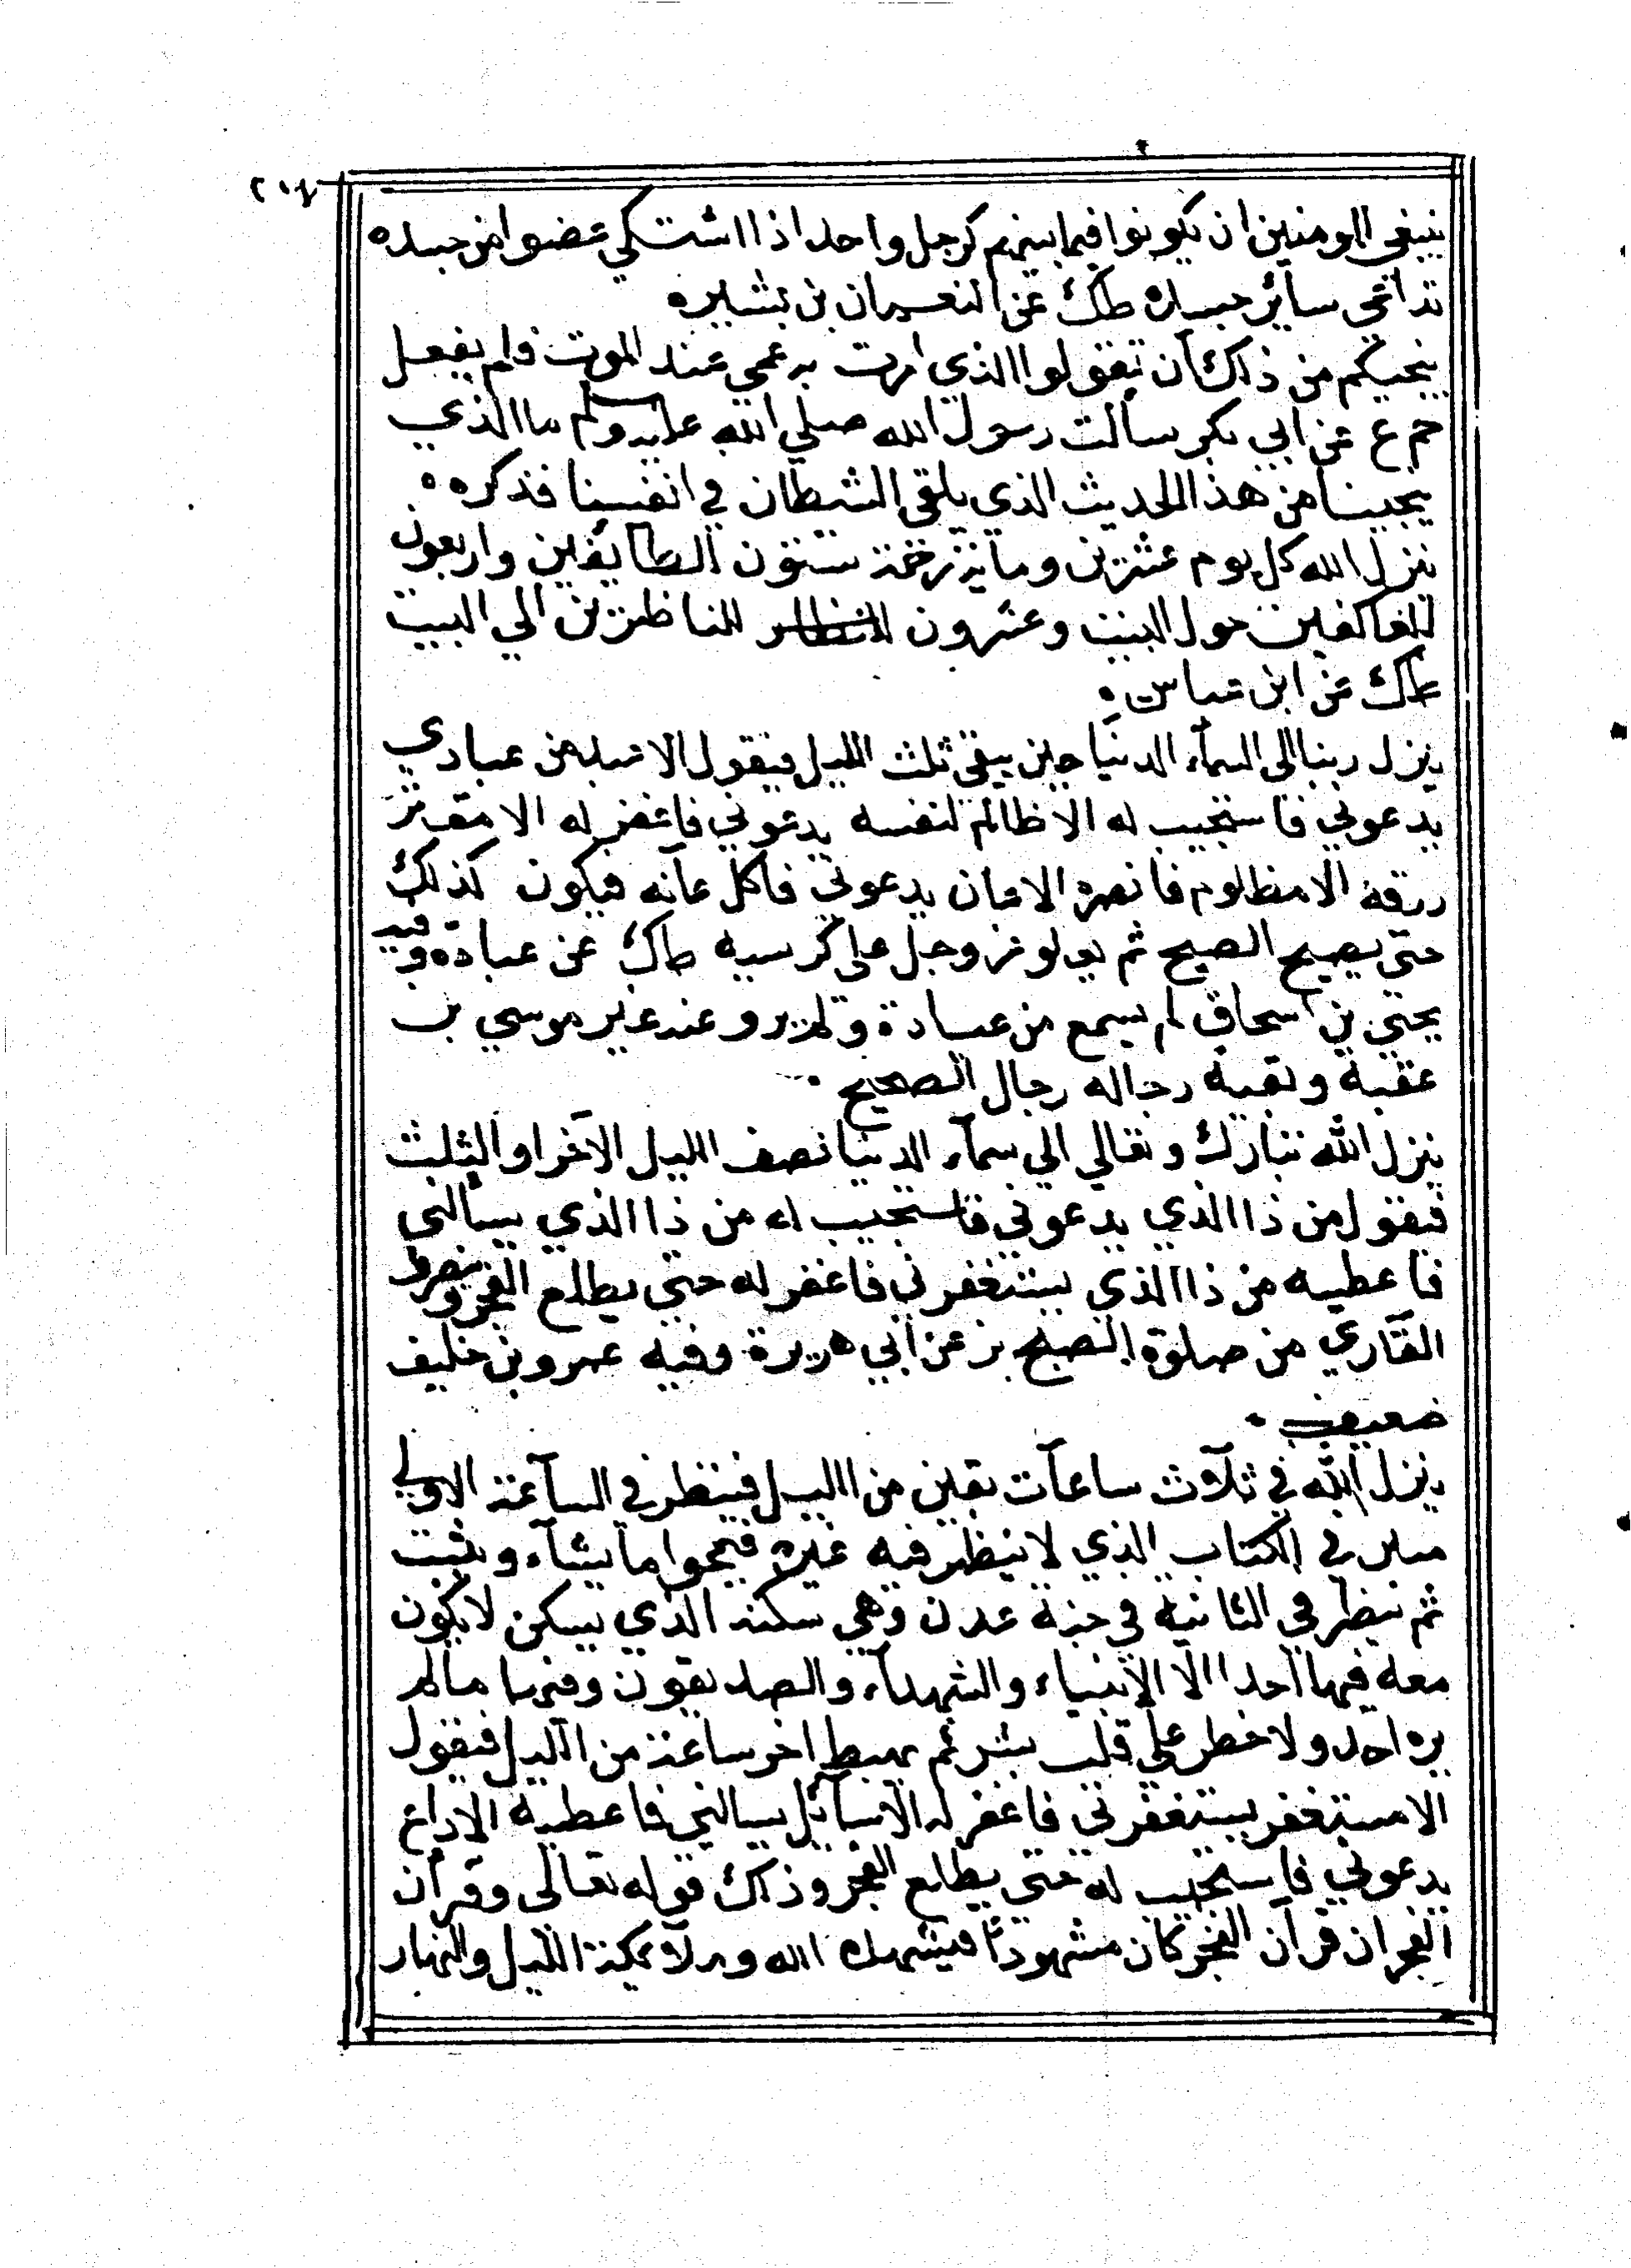 ٢٠٤
ينبغي للمومنين ان يكونوا فيما بينهم كرجل واحد اذا اشتكي عضوا من جسده
تداعي سائر جسده طك عن النعمان بن بشير ه
ينجيكم من ذلك ان تقولوا الذي امرت به عمي عند الموت فلم يفعل
حم ع عن ابي بكر سألت رسول الله صلي الله عليه وسلم ما الذي
ينجينا من هذا الحديث الذي يلقي الشيطان في انفسنا فذكره ه
ينزل الله كل يوم عشرين وماية رحمة ستون للطايفين واربعون
للعاكفين حول البيت وعشرون للناظرين الي البيت
طك عن ابن عباس ه
ينزل ربنا الى السمآء الدنيا حين يبقي ثلث الليل فيقول الا عبد من عبادي
يدعوني فاستجيب له الا ظالم لنفسه يدعوني فاغفر له الا مقتر
رزقه الا مظلوم فانصره الا عان يدعوني فافك عانه فيكون كذلك
حتى يصبح الصبح ثم يعلو عز وجل على كرسيه طك عن عبادة وفيه
يحيي بن اسحاق لم يسمع من عبادة ولم يرو عنه غير موسي بن
عقبة وبقية رجاله رجال الصحيح .
ينزل الله تبارك وتعالي الي سمآء الدنيا نصف الليل الآخر او الثلث
فيقول من ذا الذي يدعوني فاستجيب له من ذا الذي يسألني
فاعطيه من ذا الذي يستغفرني فاغفر له حتي يطلع الفجر وينصرف
القاري من صلوة الصبح بز عن أبي هريرة وفيه عمرو بن خليف
ضعيف .
ينزل الله في ثلاث ساعات بقين من الليل فينظر في الساعة الاولي
منهن في الكتاب الذي لا ينظر فيه غيره فيمحوا ما يشآء ويثبت
ثم ينظر في الثانية في جنة عدن وهي سكنه الذي يسكن لا يكون
معه فيها احدا الا الانبياء والشهدآء والصديقون وفيها ما لم
يره احد ولا خطر علي قلب بشر ثم يهبط اخر ساعة من الليل فيقول
الا مستغفر يستغفرني فاغفر له الا سآئل يسالني فاعطيه الا داع
يدعوني فاستجيب له حتي يطلع الفجر وذلك قوله تعالى وقرآن
الفجر ان قرآن الفجر كان مشهودًا فيشهده الله وملائكة الليل والنهار